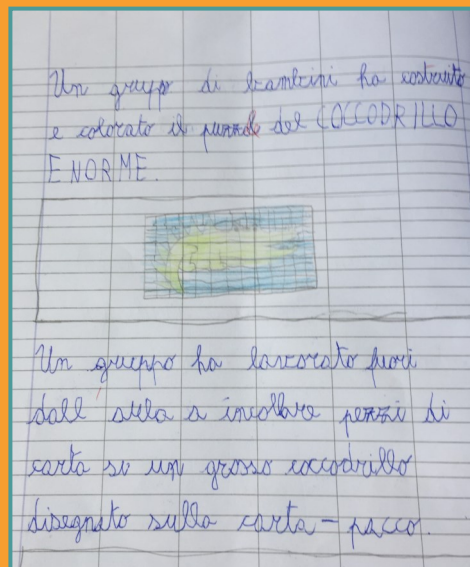 Un gruppo di bambini ha costruito
e colorato il puzzle del COCCODRILLO
ENORME.
Un gruppo ha lavorato fuori
dall aula a incollare pezzi di
carta su un grosso coccodrillo
disegnato sulla carta-pacco.